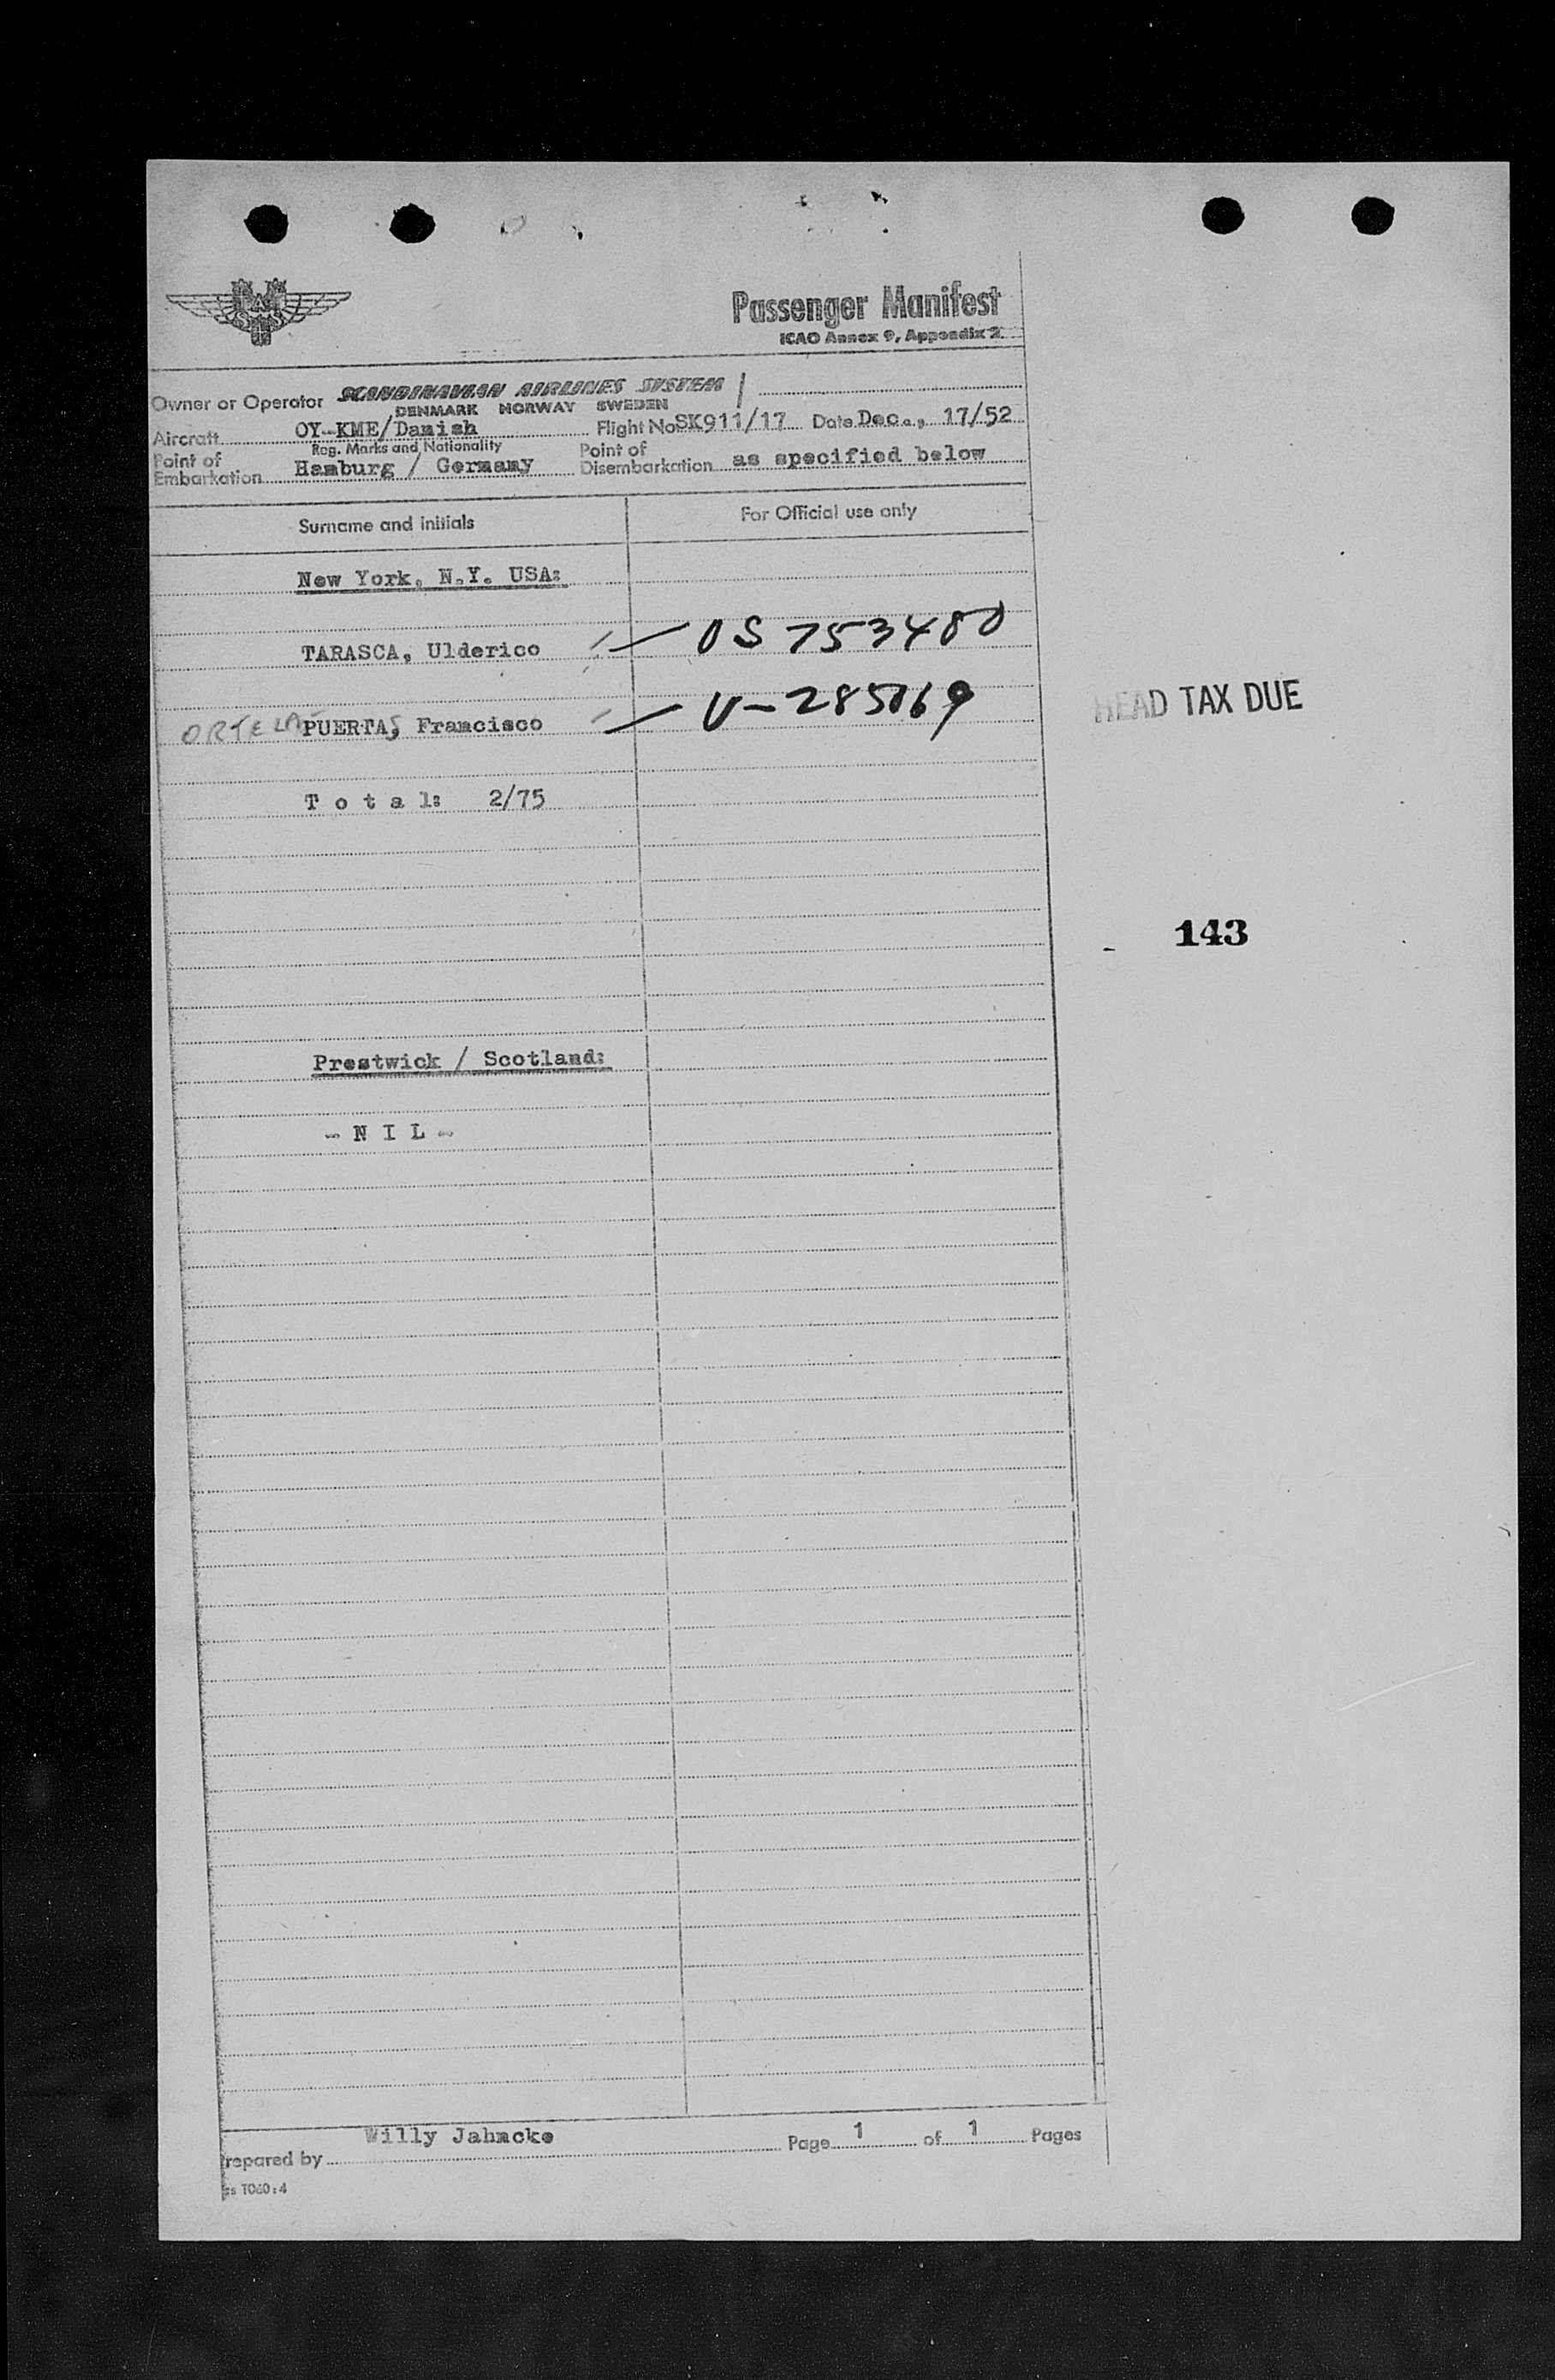 SAS
Passenger Manifest
ICAO Annex 9, Appendix 2.
Owner or Operator SCANDINAVIAN AIRLINES SYSTEM
DENMARK NORWAY SWEDEN
Aircraft OY-KME/Danish Flight No SK911/17 Date Dec., 17/52
Reg. Marks and Nationality
Point of Embarkation Hamburg / Germany Point of Disembarkation as specified below
Surname and initials For Official use only
New York, N.Y. USA:
TARASCA, Ulderico US 753480
PUERTAS, Francisco V-285069
HEAD TAX DUE
T o t a l: 2/75
143
Prestwick / Scotland:
- N I L -
Willy Jahncke
repared by Page 1 of 1 Pages
T060:4